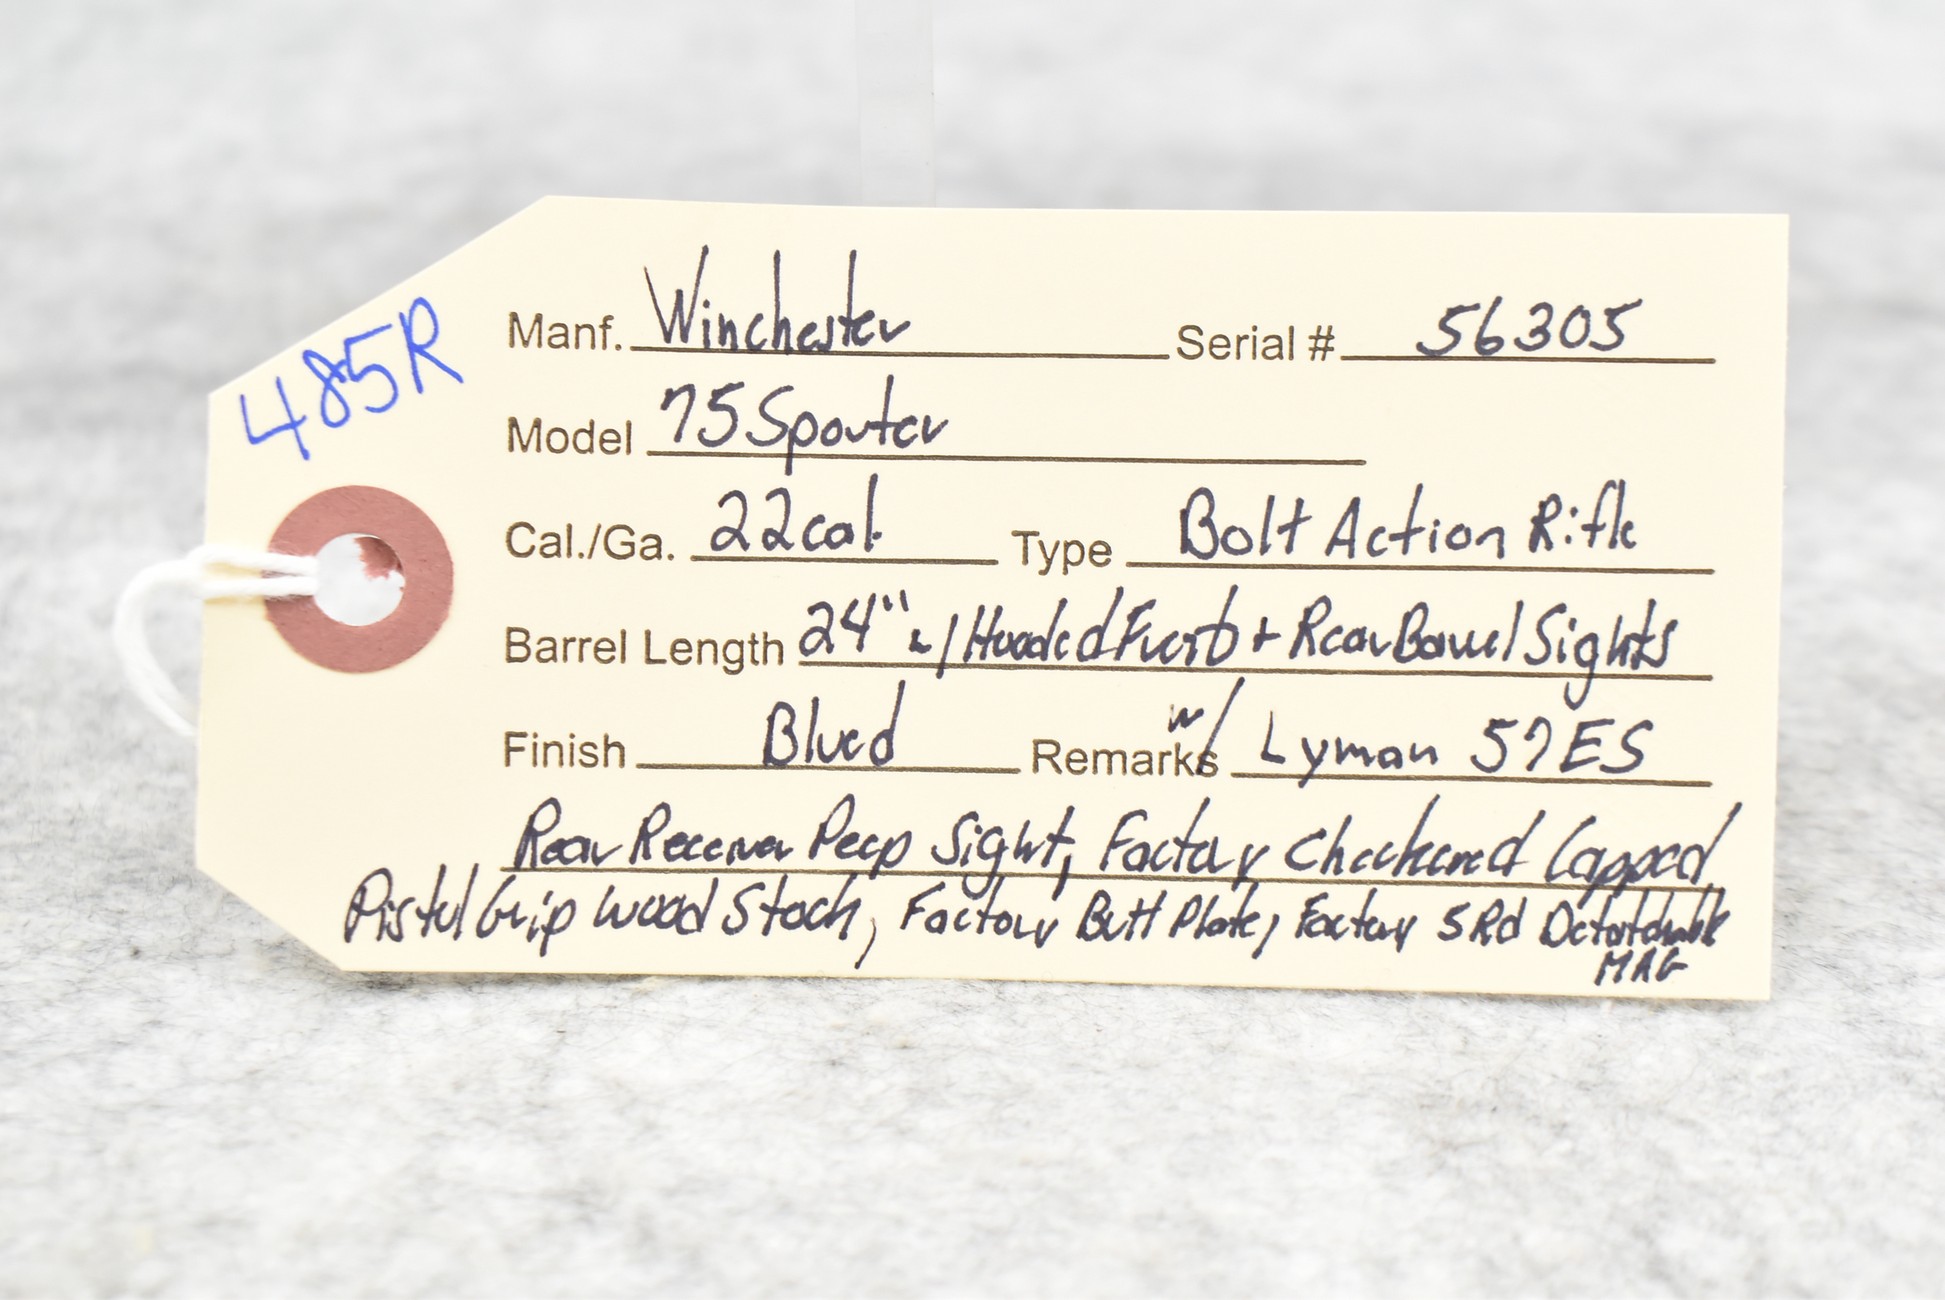 485R
Manf. Winchester Serial # 56305
Model 75 Sporter
Cal./Ga. 22 cal. Type Bolt Action Rifle
Barrel Length 24" w/ Hooded Front + Rear Barrel Sights
Finish Blued Remarks w/ Lyman 57ES
Rear Receiver Peep Sight, Factory Checkered Capped
Pistol Grip Wood Stock, Factory Butt Plate, Factory 5 Rd Detatchable
MAG